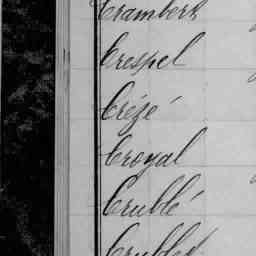 Crambert
Crespel
Crézé
Croyal
Crublé
Crublet